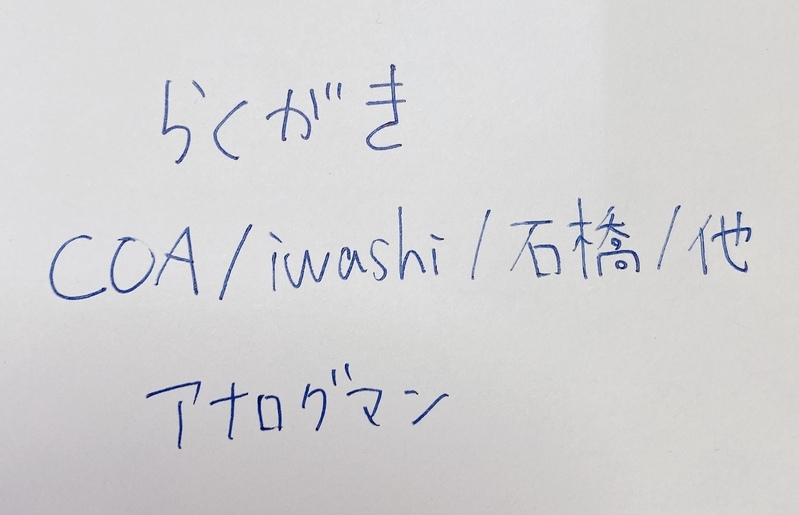 らくがき
COA/iwashi/石橋/他
アナログマン